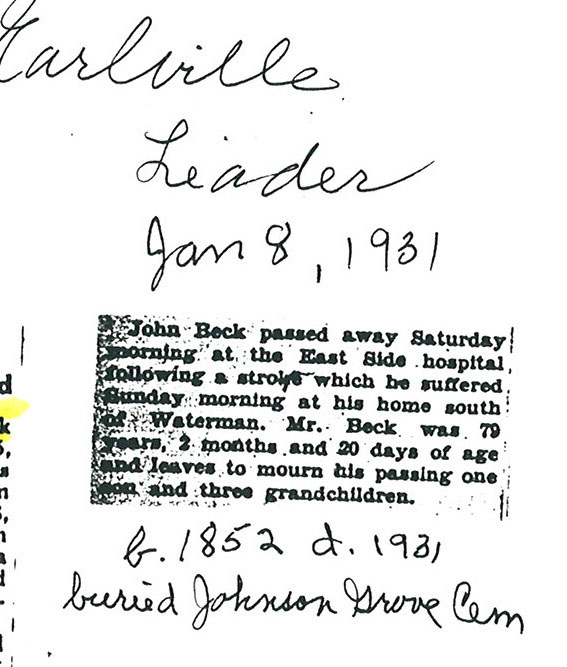 Earlville
Leader
Jan 8, 1931
John Beck passed away Saturday
morning at the East Side hospital,
following a stroke which he suffered
Sunday morning at his home south
of Waterman. Mr. Beck was 79
years, 2 months and 20 days of age
and leaves to mourn his passing one
son and three grandchildren.
b. 1852 d. 1931
buried Johnson Grove Cem